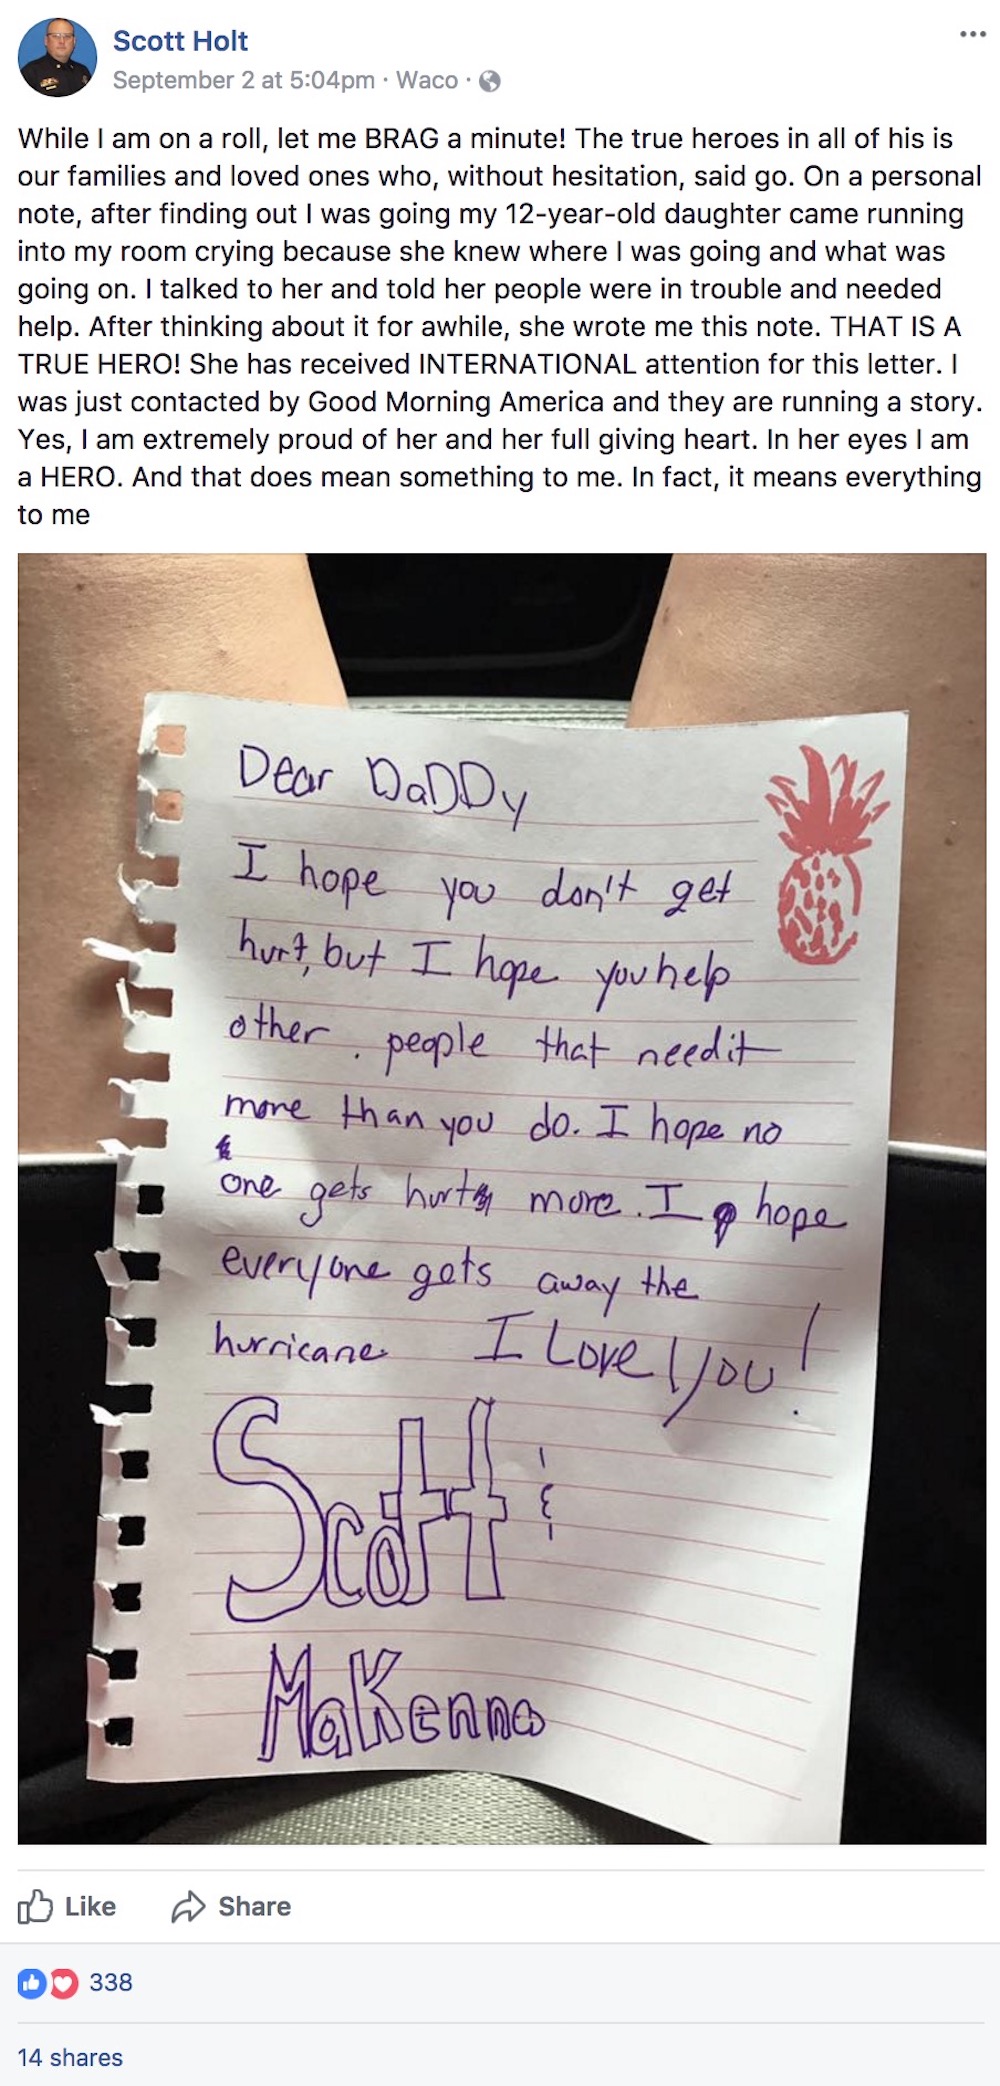 Scott Holt
September 2 at 5:04pm · Waco ·
While I am on a roll, let me BRAG a minute! The true heroes in all of his is
our families and loved ones who, without hesitation, said go. On a personal
note, after finding out I was going my 12-year-old daughter came running
into my room crying because she knew where I was going and what was
going on. I talked to her and told her people were in trouble and needed
help. After thinking about it for awhile, she wrote me this note. THAT IS A
TRUE HERO! She has received INTERNATIONAL attention for this letter. I
was just contacted by Good Morning America and they are running a story.
Yes, I am extremely proud of her and her full giving heart. In her eyes I am
a HERO. And that does mean something to me. In fact, it means everything
to me
Dear DaDDy
I hope you don't get
hurt, but I hope you help
other . people that need it
more than you do. I hope no
one gets hurt more. I hope
everyone gets away the
hurricane. I Love You!
Scott &
MaKenna
Like Share
338
14 shares